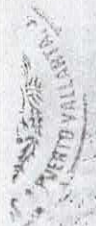 PUERTO VALLARTA, J